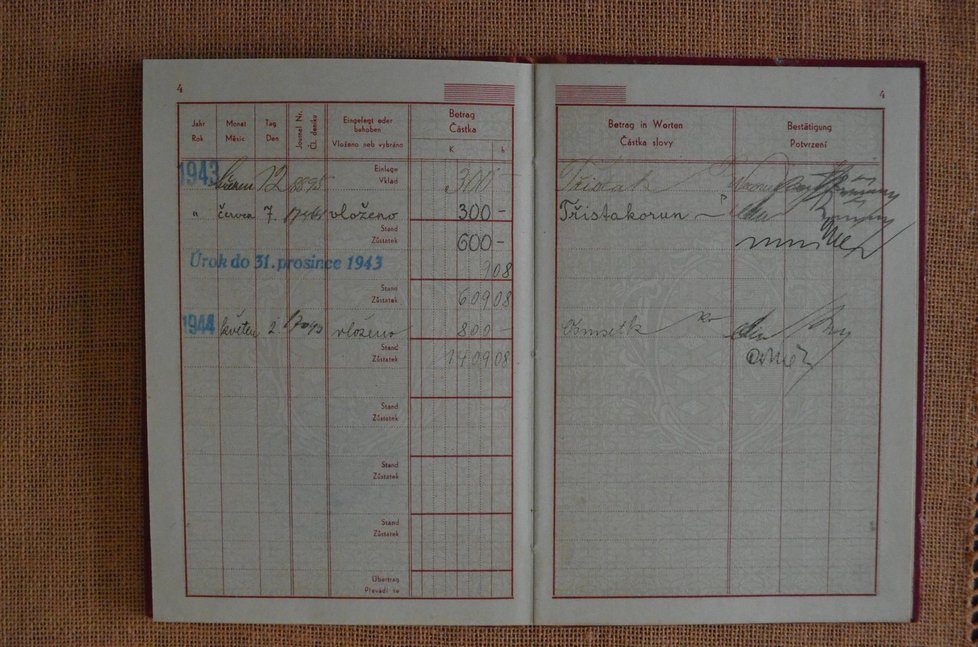 4
4
Jahr Rok
Monat Měsíc
Tag Den
Journal Nr. Čl. deníku
Eingelegt oder behoben
Vloženo neb vybráno
Betrag
Částka
K h
Betrag in Worten
Částka slovy
Bestätigung
Potvrzení
1943 12 Einlage Vklad 300
" červen 7. vloženo 300- Třistakorun
Stand Zůstatek 600-
Úrok do 31. prosince 1943 9 08
Stand Zůstatek 609 08
1944 květen 2 vloženo 800-
Stand Zůstatek 1409 08
Stand Zůstatek
Stand Zůstatek
Stand Zůstatek
Übertrag
Převádí se